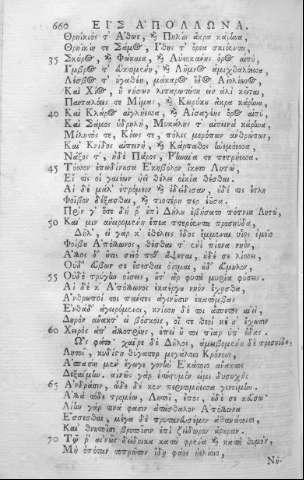 660 ΕΙΣ ΑΠΟΛΛΩΝΑ.
Θρηΐκιός τ' Ἄθως, καὶ Πηλίου ἄκρα κάρηνα,
Θρηϊκίη τε Σάμος, Ἴδης τ' ὄρεα σκιόεντα,
35 Σκῦρος, καὶ Φώκαια, καὶ Αὐτοκάνης ὄρος αἰπύ,
Ἴμβρος τ' καὶ Λῆμνος ἀμιχθαλόεσσα,
Λέσβος τ' ἠγαθέη, μάκαρος ἕδος Αἰολίωνος,
Καὶ Χίος, ἣ νήσων λιπαρωτάτη εἰν ἁλὶ κεῖται,
Παιπαλόεις τε Μίμας, καὶ Κωρύκου ἄκρα κάρηνα,
40 Καὶ Κλάρος αἰγλήεσσα, καὶ Αἰσαγέης ὄρος αἰπύ,
Καὶ Σάμος ὑδρηλή, Μυκάλης τ' αἰπεινὰ κάρηνα,
Μίλητός τε, Κόως τε, πόλις μερόπων ἀνθρώπων,
Καὶ Κνίδος αἰπεινή, καὶ Κάρπαθος ἠνεμόεσσα,
Νάξος τ', ἠδὲ Πάρος, Ῥήναιά τε πετρήεσσα.
45 Τόσσον ἐπ' ὠδίνουσα Ἑκηβόλον ἵκετο Λητώ,
Εἴ τις οἱ γαιέων υἱεῖ θέλοι οἰκία θέσθαι.
Αἱ δὲ μάλ' ἐτρόμεον καὶ ἐδείδισαν, οὐδέ τις ἔτλη
Φοῖβον δέξασθαι, καὶ πιοτέρη περ ἐοῦσα.
Πρίν γ' ὅτε δή ῥ' ἐπὶ Δήλου ἐβήσατο πότνια Λητώ,
50 Καί μιν ἀνειρομένη ἔπεα πτερόεντα προσηύδα.
Δῆλ', εἰ γάρ κ' ἐθέλεις ἕδος ἔμμεναι υἷος ἐμοῖο
Φοίβου Ἀπόλλωνος, θέσθαι τ' ἐνὶ πίονα νηόν,
Ἄλλος δ' οὔτις σεῖό ποθ' ἅψεται, οὐδέ σε λήσει,
Οὐδ' εὔβων σε ἔσεσθαι ὀΐομαι, οὐδ' εὔμηλον,
55 Οὐδὲ τρύγην οἴσεις, οὔτ' ἂρ φυτὰ μυρία φύσεις.
Αἱ δέ κ' Ἀπόλλωνος ἑκαέργου νηὸν ἔχησθα,
Ἄνθρωποί τοι πάντες ἀγινήσουσ' ἑκατόμβας
Ἐνθάδ' ἀγειρόμενοι,
60 Χειρὸς ἀπ' ἀλλοτρίης, ἐπεὶ οὔ τοι πῖαρ ὑπ' οὖδας.
Ὣς φάτο· χαῖρε δὲ Δῆλος, ἀμειβομένη δὲ προσηύδα·
Λητοῖ, κυδίστη θύγατερ μεγάλοιο Κρόνοιο,
Ἀσπασίη μὲν ἔγωγε γονὴν Ἑκάτοιο ἄνακτος
Δεξαίμην. αἰνῶς γὰρ ἐτήτυμόν εἰμι δυσηχὴς
65 Ἀνδράσιν, ὧδε δέ κεν περιτιμήεσσα γενοίμην.
Ἀλλὰ τόδε τρομέω, Λητοῖ, ἔπος, οὐδέ σε κεύσω·
Λίην γάρ τινά φασιν ἀτάσθαλον Ἀπόλλωνα
Ἔσσεσθαι, μέγα δὲ πρυτανευσέμεν ἀθανάτοισι,
Καὶ θνητοῖσι βροτοῖσιν ἐπὶ ζείδωρον ἄρουραν.
70 Τῷ ῥ' αἰνῶς δείδοικα κατὰ φρένα καὶ κατὰ θυμόν,
Μὴ ὁπόταν
Νῆ-